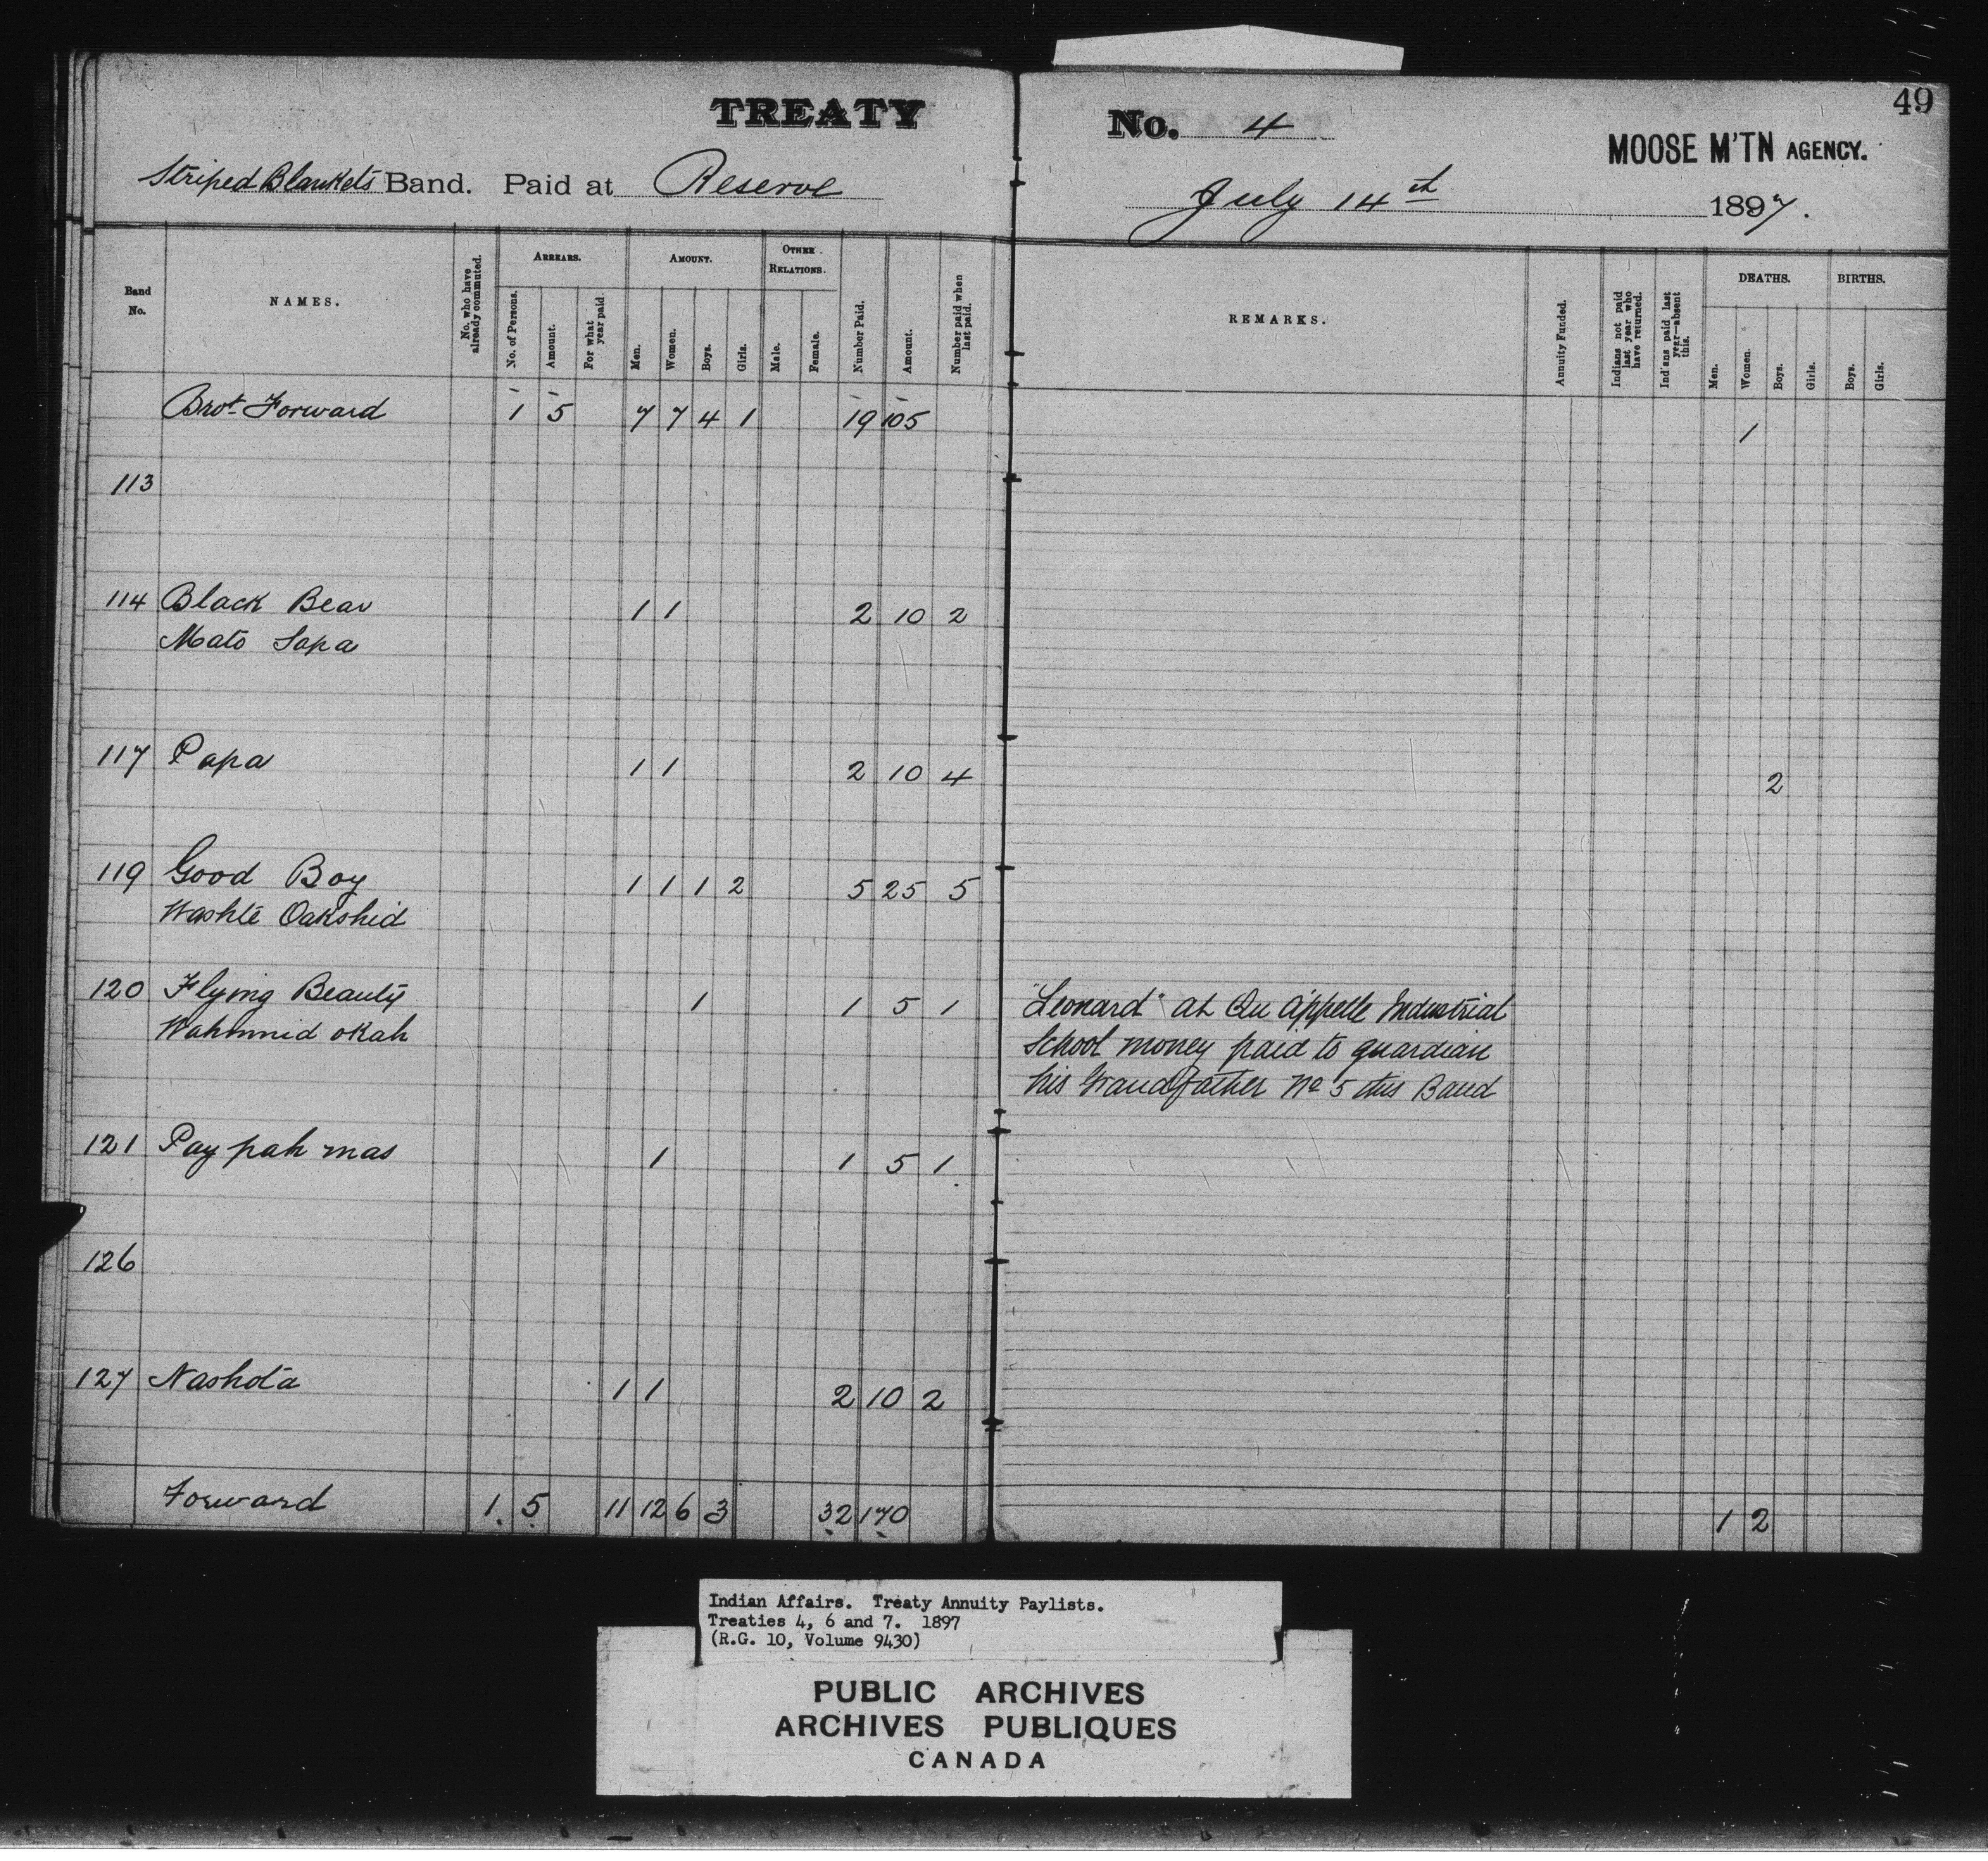 49
TREATY No. 4
MOOSE M'TN AGENCY.
Striped Blankets Band. Paid at Reserve July 14th 1897.
Band No.
NAMES.
No. who have already commuted.
ARREARS.
No. of Persons.
Amount.
For what year paid.
AMOUNT.
Men.
Women.
Boys.
Girls.
OTHER RELATIONS.
Male.
Female.
Number Paid.
Amount.
Number paid when last paid.
REMARKS.
Annuity Funded.
Indians not paid last year who have returned.
Indians paid last year—absent this.
DEATHS.
Men.
Women.
Boys.
Girls.
BIRTHS.
Boys.
Girls.
Brot Forward 1 5 7 7 4 1 19 105 1
113
114 Black Bear 1 1 2 10 2
Mato Sapa
117 Papa 1 1 2 10 4 2
119 Good Boy 1 1 1 2 5 25 5
Washte Oakshid
120 Flying Beauty 1 1 5 1 "Leonard" at Qu Appelle Industrial
Wahmnid okah School money paid to guardian
his Grandfather No 5 this Band
121 Pay pah mas 1 1 5 1
126
127 Nashota 1 1 2 10 2
Forward 1 5 11 12 6 3 32 170 1 2
Indian Affairs. Treaty Annuity Paylists.
Treaties 4, 6 and 7. 1897
(R.G. 10, Volume 9430)
PUBLIC ARCHIVES
ARCHIVES PUBLIQUES
CANADA